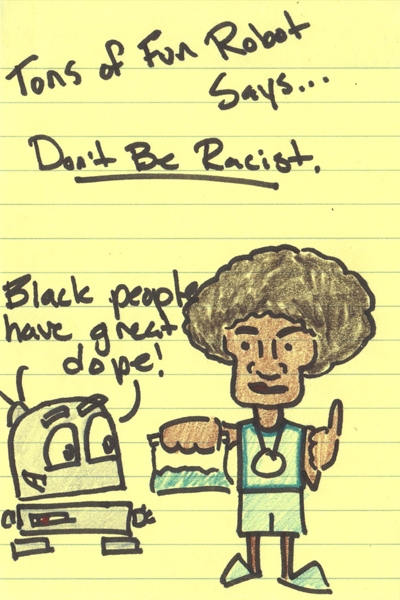 Tons of Fun Robot
Says...
Don't Be Racist.
Black people
have great
dope!